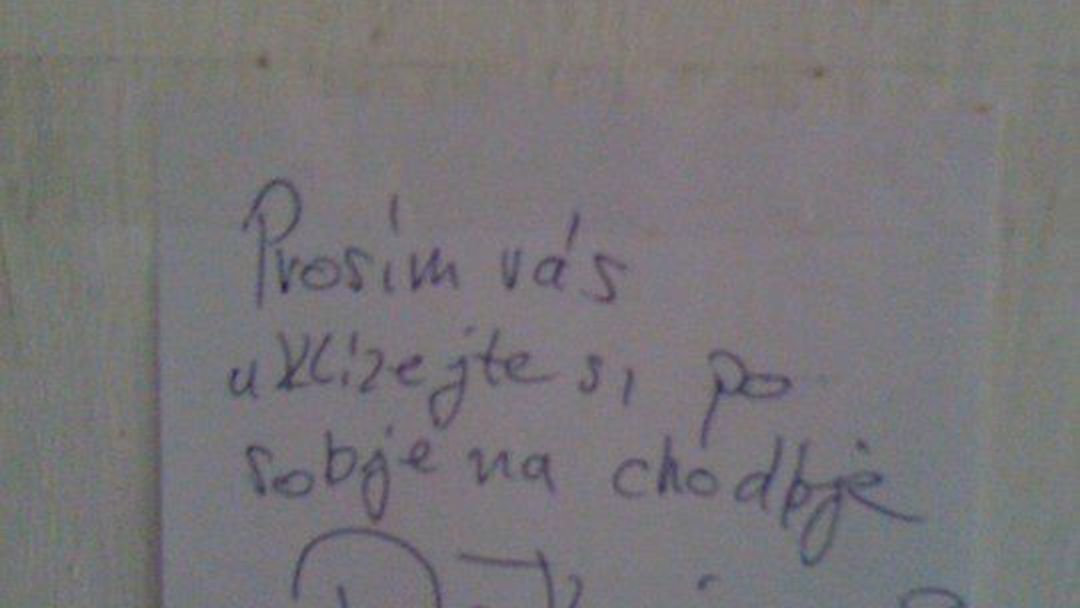 Prosím vás
uklizejte si po
sobje na chodbje